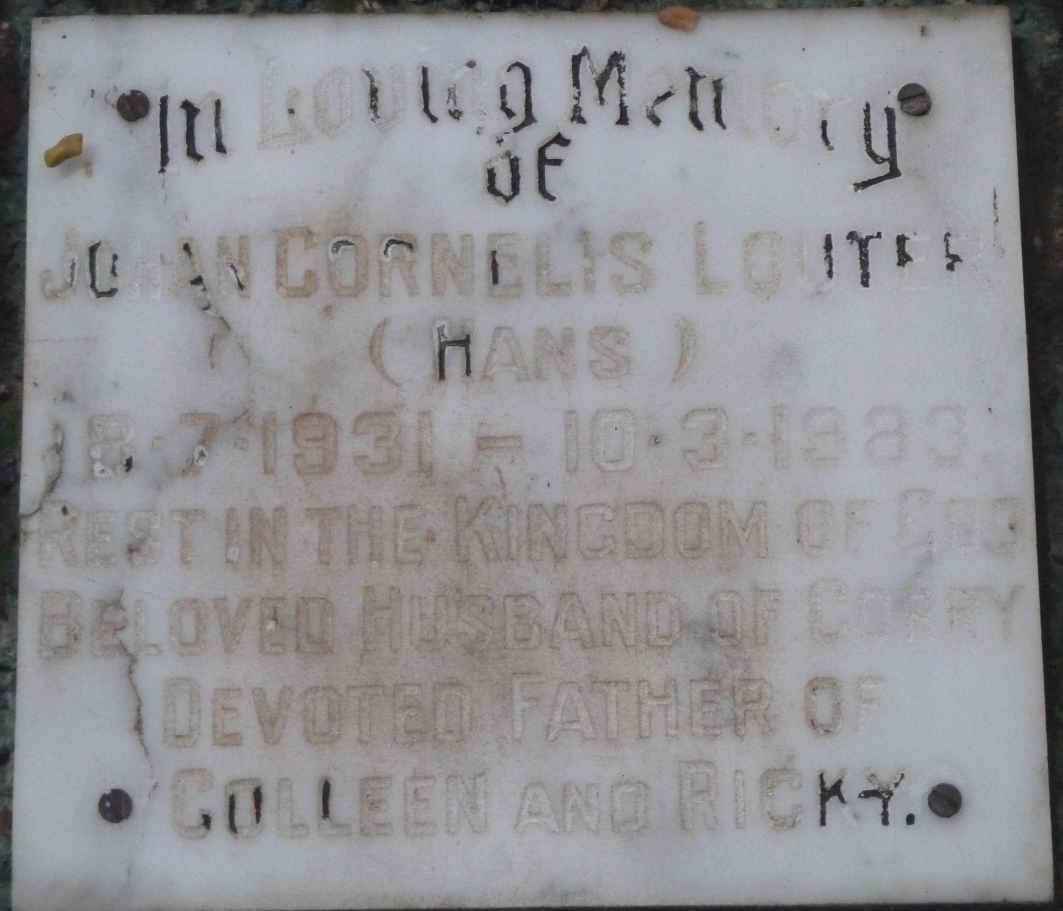 In Loving Memory
of
JOHAN CORNELIS LOUTER
( HANS )
8·7·1931 - 10·3·1983
REST IN THE KINGDOM OF GOD
BELOVED HUSBAND OF CORRY
DEVOTED FATHER OF
COLLEEN AND RICKY.